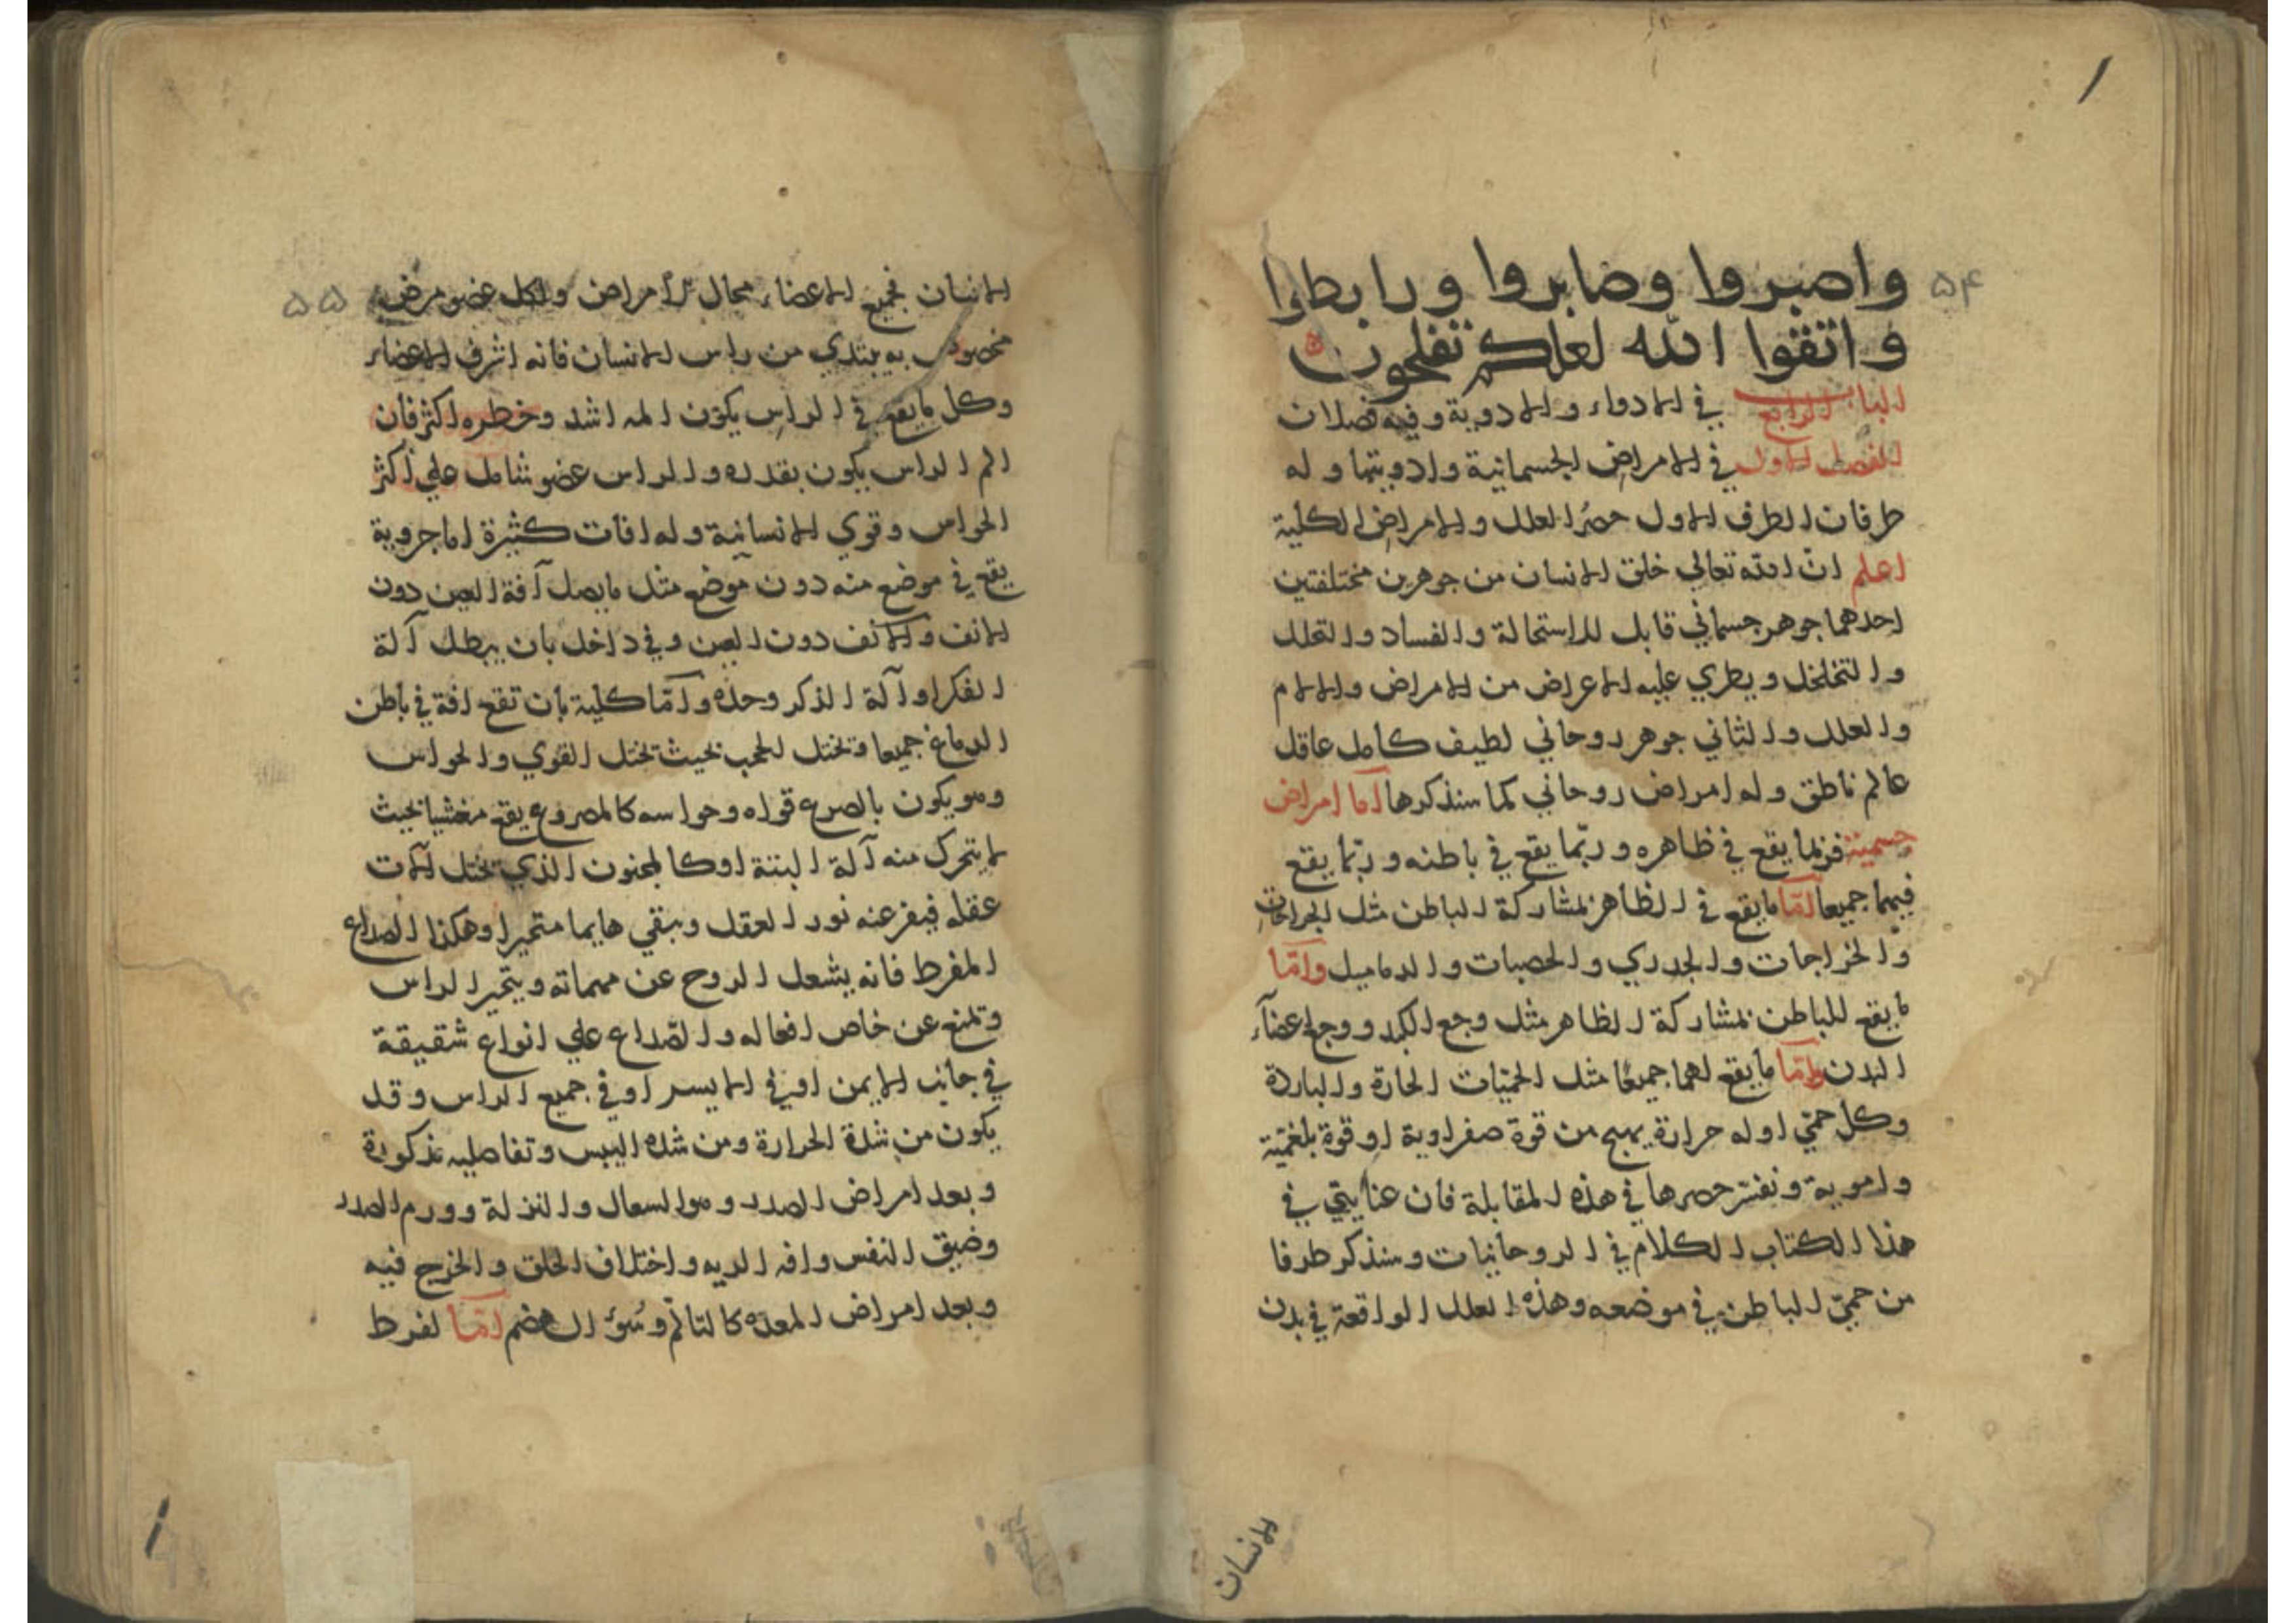 ۵۴
واصبروا وصابروا ورابطوا
واتقوا الله لعلكم تفلحون
الباب الرابع في الادواء والادوية وفيه فصلان
الفصل الاول في الامراض الجسمانية وادويتها وله
طرفان الطرف الاول حصر العلل والامراض الكلية
اعلم ان الله تعالى خلق الانسان من جوهرين مختلفتين
احدهما جوهر جسماني قابل للاستحالة والفساد والتحلل
والتخلخل ويطري عليه الاعراض من الامراض والالام
والعلل والثاني جوهر روحاني لطيف كامل عاقل
عالم ناطق وله امراض روحاني كما سنذكرها اما امراض
جسمية فربما يقع في ظاهره وربما يقع في باطنه وربما يقع
فيهما جميعا اما ما يقع في الظاهر بمشاركة الباطن مثل الجراحات
والخراجات والجدري والحصبات والدماميل واما
ما يقع للباطن بمشاركة الظاهر مثل وجع الكبد ووجع اعضآء
البدن واما ما يقع لهما جميعا مثل الحميات الحارة والباردة
وكل حمي اوله حرارة يهيج من قوة صفراوية او قوة بلغمية
وامويه ونفتر حصرها في هذه المقابلة فان عنايتي في
هذا الكتاب الكلام في الروحانيات وسنذكر طرفا
من حمي الباطن في موضعه وهذه العلل الواقعة في بدن
الانسان
۵۵
الانسان فجميع الاعضاء محال الامراض ولكل عضو مرض
مخصوص به يبتدي من راس الانسان فانه اشرف الاعضاء
وكل ما يقع في الراس يكون المه اشد وخطره اكثر فان
الم الراس يكون بقدره والراس عضو شامل علي اكثر
الحواس وقوي الانسانية وله افات كثيرة اما جزوية
يقع في موضع منه دون موضع مثل ما يصل آفة العين دون
الانف والانف دون العين وفي داخل بان يبطل آلة
الفكر او آلة الذكر وحده واما كلية بان تقع افة في باطن
الدماغ جميعا وتختل الحجب بحيث تختل القوي والحواس
وهو يكون بالصرع قواه وحواسه كالمصروع يقع مغشيا بحيث
لا يتحرك منه آلة البتة او كالمجنون الذي تختل آلات
عقله فيفر عنه نور العقل ويبقي هايما متحيرا وهكذا الصداع
المفرط فانه يشعل الروح عن مهماته ويتحير الراس
وتمنع عن خاص افعاله والصداع علي انواع شقيقة
في جانب الايمن او في الايسر او في جميع الراس وقد
يكون من شدة الحرارة ومن شدة اليبس وتفاصليه مذكورة
وبعد امراض الصدر وهو السعال والنزلة وورم الصدر
وضيق النفس وافه الريه واختلاف الحلق والخزج فيه
وبعد امراض المعدة كالتالم وسوء الهضم اما لفرط